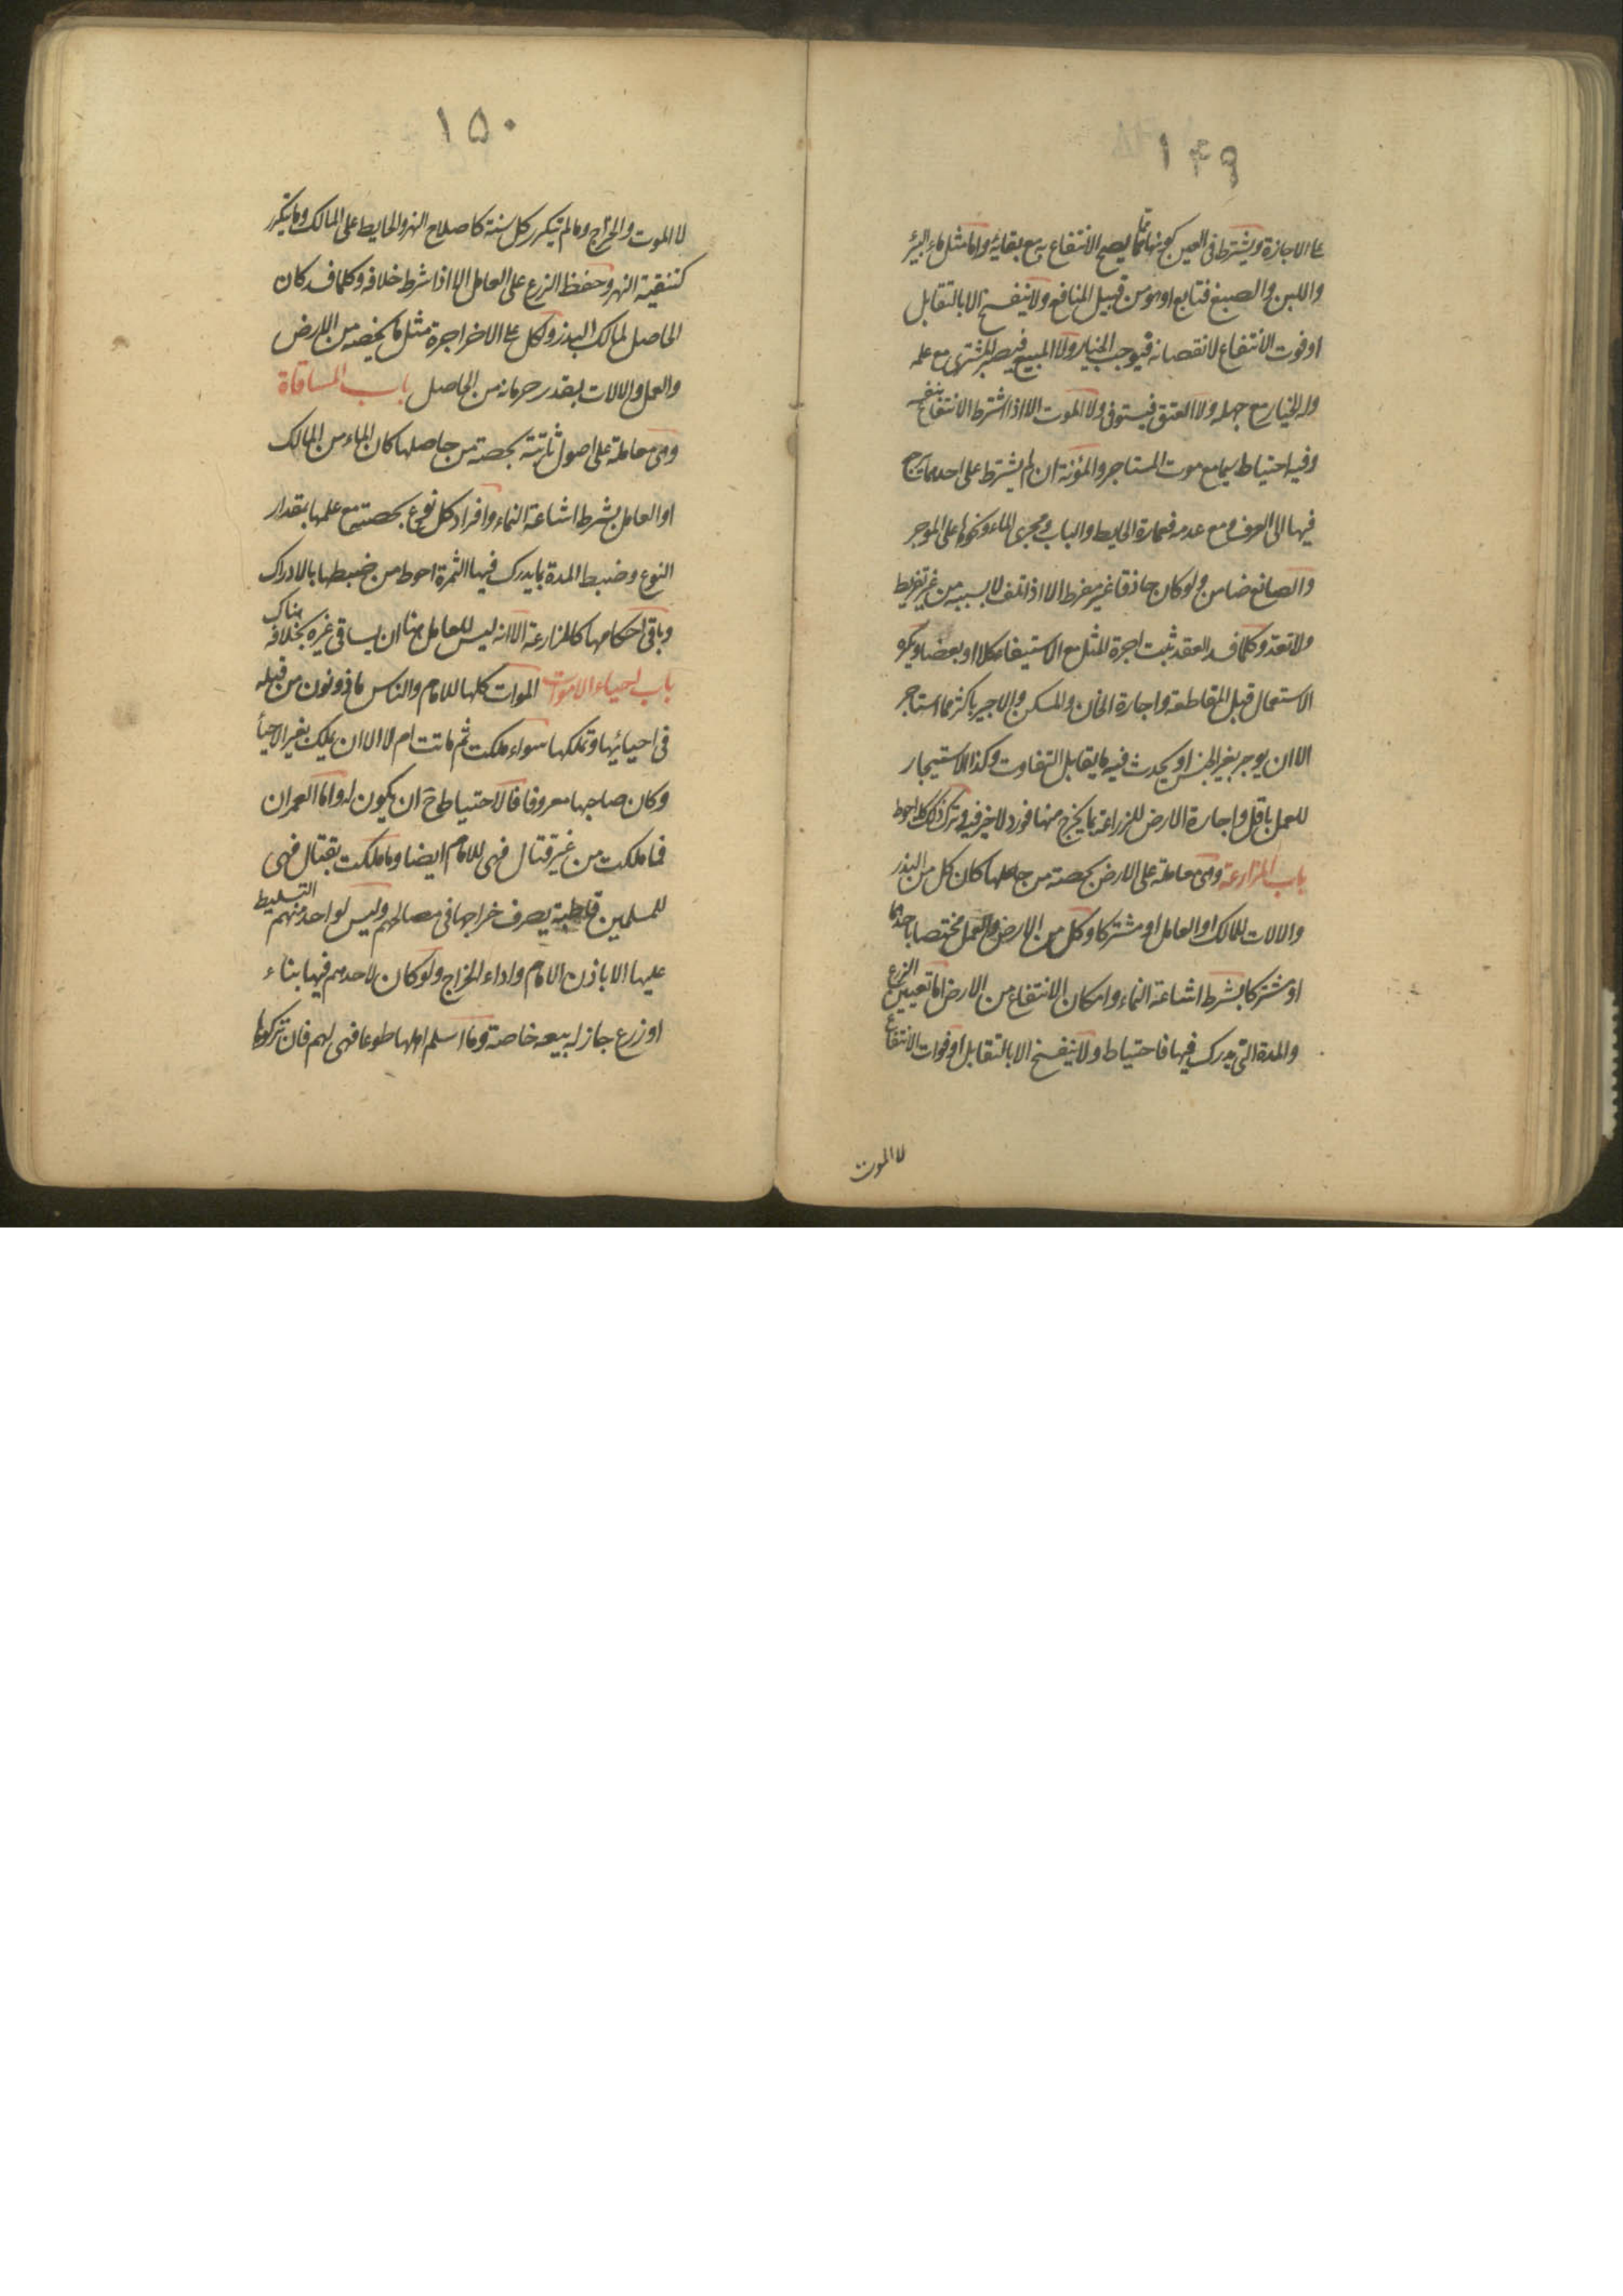 ۱۴۹
على الاجازة ويشترط فى العين كونها مما يصح الانتفاع به مع بقائه واما مثل ماء البئر
واللبن والصبغ فتابع او هو من قبيل المنافع ولا ينفسخ الا بالتقابل
او فوت الانتفاع لا نقصانه فيوجب الخيار ولا المبيع فيصبر المشترى مع علمه
وله الخيار مع جهله ولا العتق فيستوفى ولا الموت الا اذا اشترط الانتفاع بنفسه
وفيه احتياط سيما مع موت المستاجر والمؤنة ان لم يشترط على احدهما يرجع
فيها الى العرف ومع عدمه فعمارة الحايط والباب ومجرى الماء ونحوها على الموجر
والصانع ضامن ولو كان حاذقا غير مفرط الا اذا تلف لا بسببه من غير تفريط
ولا تعد وكلما فسد العقد ثبت اجرة المثل مع الاستيفاء كلا او بعضا ويكره
الاستعمال قبل المقاطعة واجارة الخان والمسكن والاجير باكثر مما استاجر
الا ان يوجر بغير الجنس او يحدث فيه ما يقابل التفاوت وكذا الاستيجار
للعمل باقل واجارة الارض للزراعة بما يخرج منها فورد لا خير فيه وترك ذلك كله احوط
باب المزارعة وهى معاملة على الارض بحصة من حاصلها كان كل من البذر
والالات للمالك او العامل او مشتركا وكل من الارض والعمل مختصا باحدهما
او مشتركا بشرط اشاعة النماء وامكان الانتفاع من الارض اما تعيين الزرع
والمدة التى يدرك فيها فاحتياط ولا ينفسخ الا بالتقابل او فوات الانتفاع
لا الموت
۱۵۰
لا الموت والخراج وما لم يتكرر كل سنة كاصلاح النهر والحايط على المالك وما يتكرر
كتنقية النهر وحفظ الزرع على العامل الا اذا شرط خلافه وكلما فسد كان
الحاصل لمالك البذر ولكل على الاخر اجرة مثل ما يخصه من الارض
والعمل والالات بقدر حرمانه من الحاصل باب المساقاة
وهى معاملة على اصول ثابتة بحصة من حاصلها كان الماء من المالك
او العامل بشرط اشاعة النماء وافراد كل نوع بحصته مع علمها بمقدار
النوع وضبط المدة بما يدرك فيها الثمرة احوط من ضبطها بالادراك
وباقى احكامها كالمزارعة الا انه ليس للعامل هنا ان يساقى غيره بخلافه هناك
باب احياء الاموات الموات كلها للامام والناس ماذونون من قبله
فى احيائها وتملكها سواء ملكت ثم ماتت ام لا الا ان يملك بغير الاحيأ
وكان صاحبها معروفا فالاحتياط ح ان يكون له واما العمران
فما ملكت من غير قتال فهى للامام ايضا وما ملكت بقتال فهى
للمسلمين قاطبة يصرف خراجها فى مصالحهم وليس لواحد منهم التسليط
عليها الا باذن الامام واداء الخراج ولو كان لاحدهم فيها بناء
او زرع جاز له بيعه خاصة وما اسلم اهلها طوعا فهى لهم فان تركوها